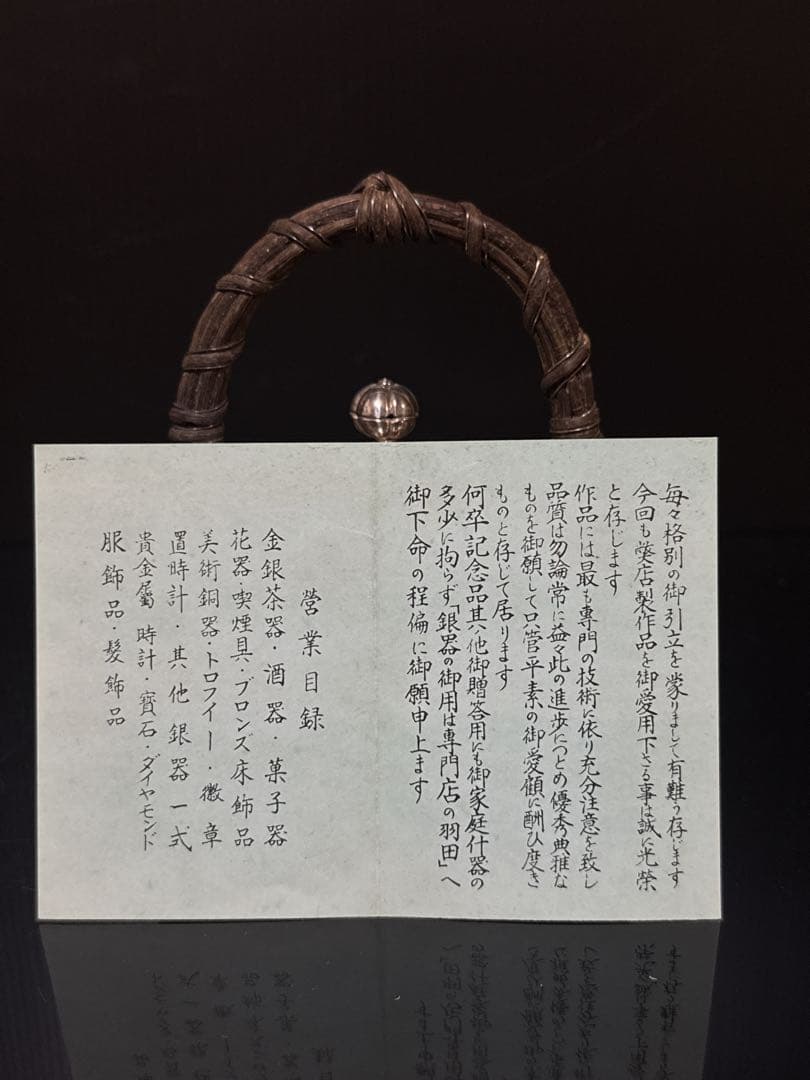 毎々格別の御引立を蒙りまして有難う存じます
今回も弊店製作品を御愛用下さる事は誠に光榮
と存じます
作品には最も専門の技術に依り充分注意を致し
品質は勿論常に益々此の進歩につとめ優秀典雅な
ものを御願して只管平素の御愛顧に酬ひ度き
ものと存じて居ります
何卒記念品其他御贈答用にも御家庭什器の
多少に拘らず「銀器の御用は専門店の羽田」へ
御下命の程偏に御願申上ます
營業目録
金銀茶器・酒器・菓子器
花器・喫煙具・ブロンズ床飾品
美術銅器・トロフイー・徽章
置時計・其他銀器一式
貴金屬 時計・寶石・ダイヤモンド
服飾品・髪飾品